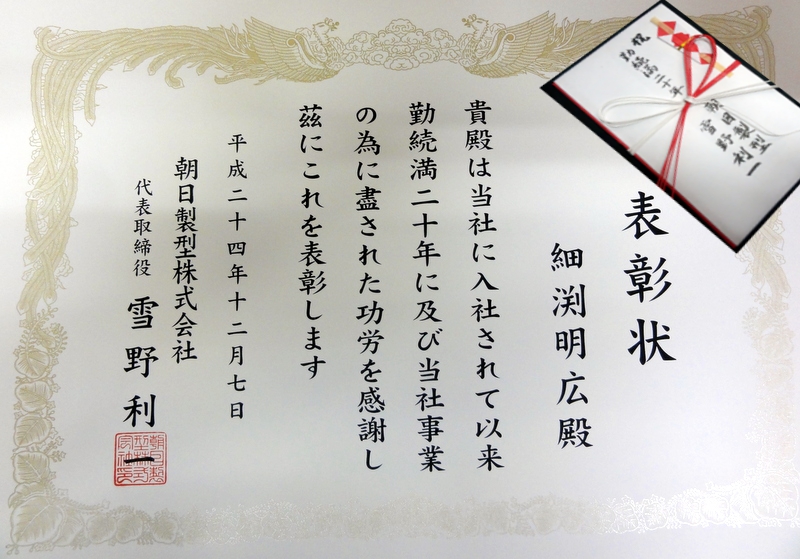 表彰状
細渕明広殿
貴殿は当社に入社されて以来
勤続満二十年に及び当社事業
の為に盡された功労を感謝し
茲にこれを表彰します
平成二十四年十二月七日
朝日製型株式会社
代表取締役 雪野利一
朝日製型株式会社印
祝
勤続満二十年
朝日製型
雪野利一